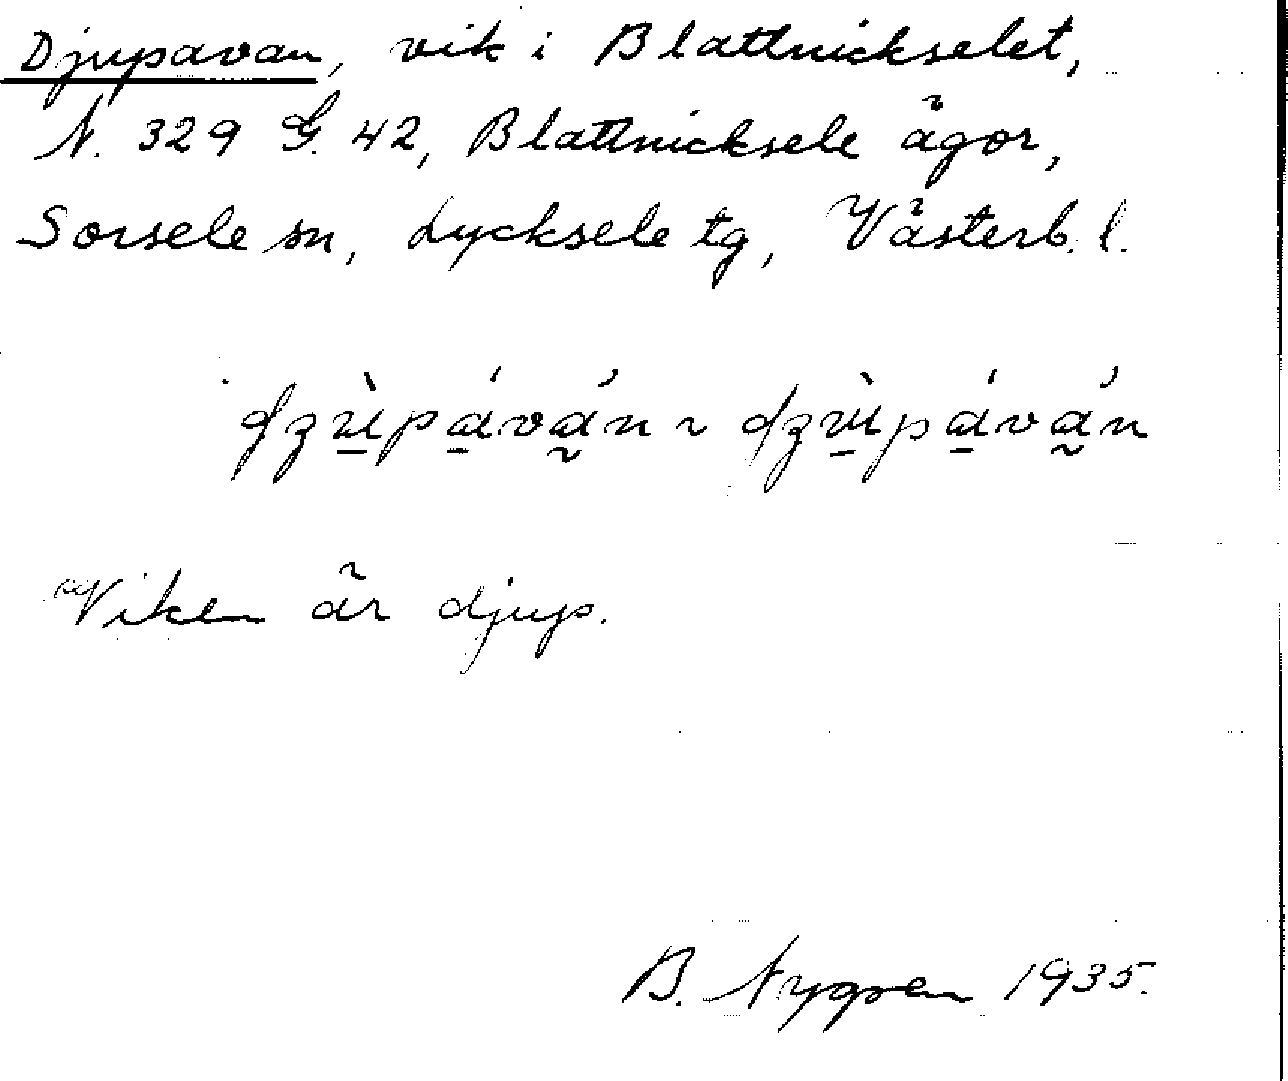 Djupavan, vik i Blattnickselet,
N. 329 G. 42, Blattnicksele ägor,
Sorsele sn, Lycksele tg, Västerb. l.
Viken är djup.
B. Nygren 1935.